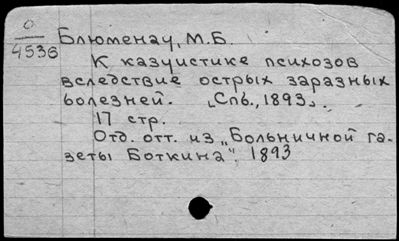 О
4536
Блюменау, М.Б.
К казуистике психозов
вследствие острых заразных
болезней. „Спб., 1893„.
17 стр.
Отд. отт. из „Больничной га-
зеты Боткина". 1893